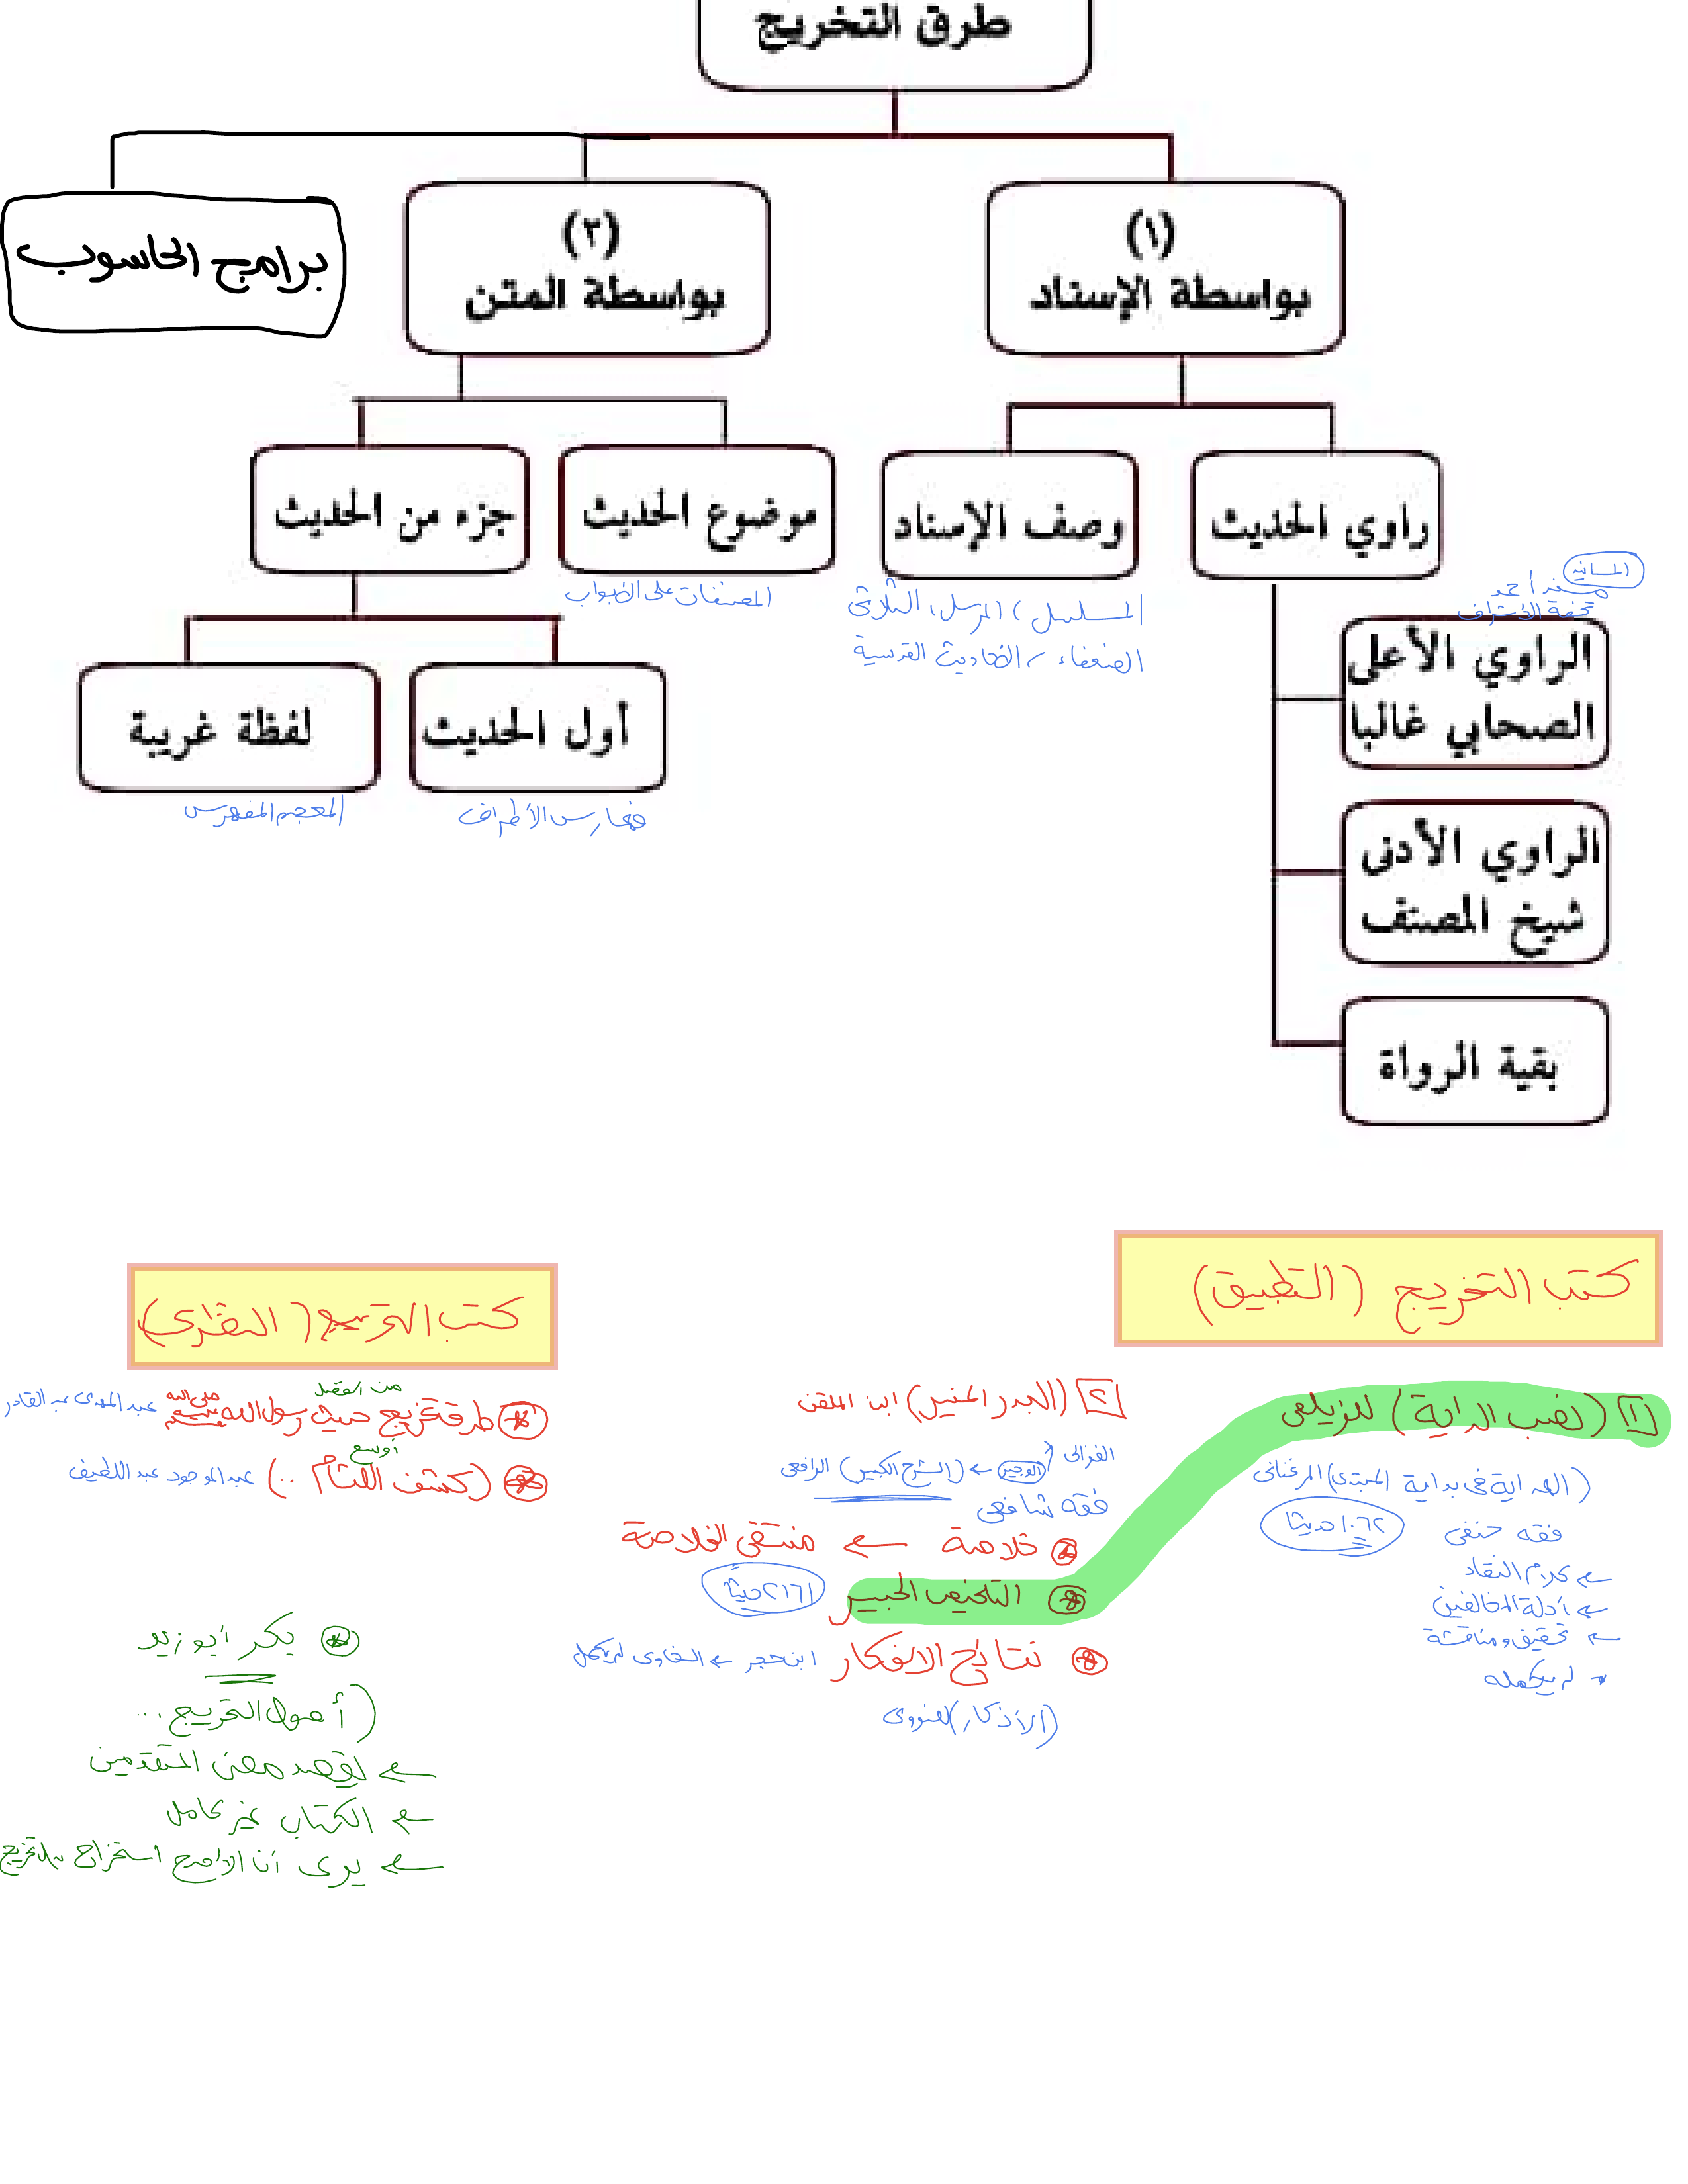 طرق التخريج
(١)
بواسطة الإسناد
(٢)
بواسطة المتن
برامج الحاسوب
راوي الحديث
وصف الإسناد
موضوع الحديث
جزء من الحديث
المسانيد
مسند أحمد
تحفة الأشراف
المسلسل، المرسل، الثلاثي
الضعفاء، الأحاديث القدسية
المصنفات على الأبواب
الراوي الأعلى
الصحابي غالبا
أول الحديث
لفظة غريبة
فهارس الأطراف
المعجم المفهرس
الراوي الأدنى
شيخ المصنف
بقية الرواة
كتب التخريج (التطبيق)
١ (نصب الراية) للزيلعي
(الهداية في بداية المبتدي) المرغناني
فقه حنفي
١٠٦٢ حديثا
← كلام النقاد
← أدلة المخالفين
← تحقيق ومناقشة
* لم يكمله
٢ (البدر المنير) ابن الملقن
الغزالي (الوجيز) ← (الشرح الكبير) الرافعي
فقه شافعي
* خلاصة ← منتقى الخلاصة
* التلخيص الحبير
٢١٦١ حديثا
* نتائج الافكار ابن حجر ← السخاوي لم يكمل
(الأذكار) للنووي
كتب التخريج (النظري)
من أفضل
* طرق تخريج حديث رسول الله صلى الله عليه وسلم عبد المهدي عبد القادر
أوسع
* (كشف اللثام ..) عبد الموجود عبد اللطيف
* بكر أبو زيد
(أصول التخريج ...
← الكتاب غير كامل
← يرى أن الأصح استخراج لا تخريج